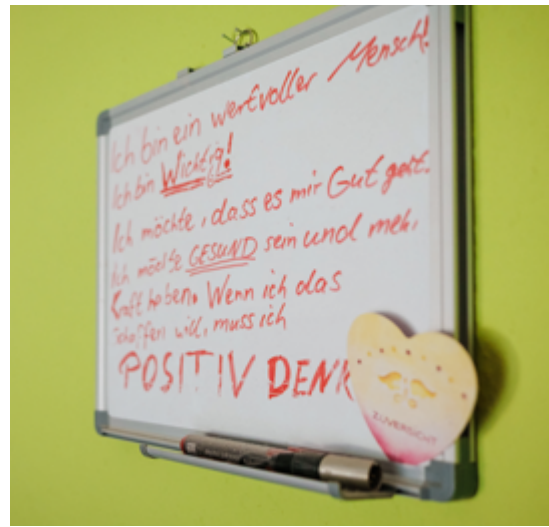 Ich bin ein wertvoller Mensch!
Ich bin Wichtig!
Ich möchte, dass es mir Gut geht.
Ich möchte GESUND sein und mehr
Kraft haben. Wenn ich das
schaffen will, muss ich
POSITIV DENK
ZUVERSICHT